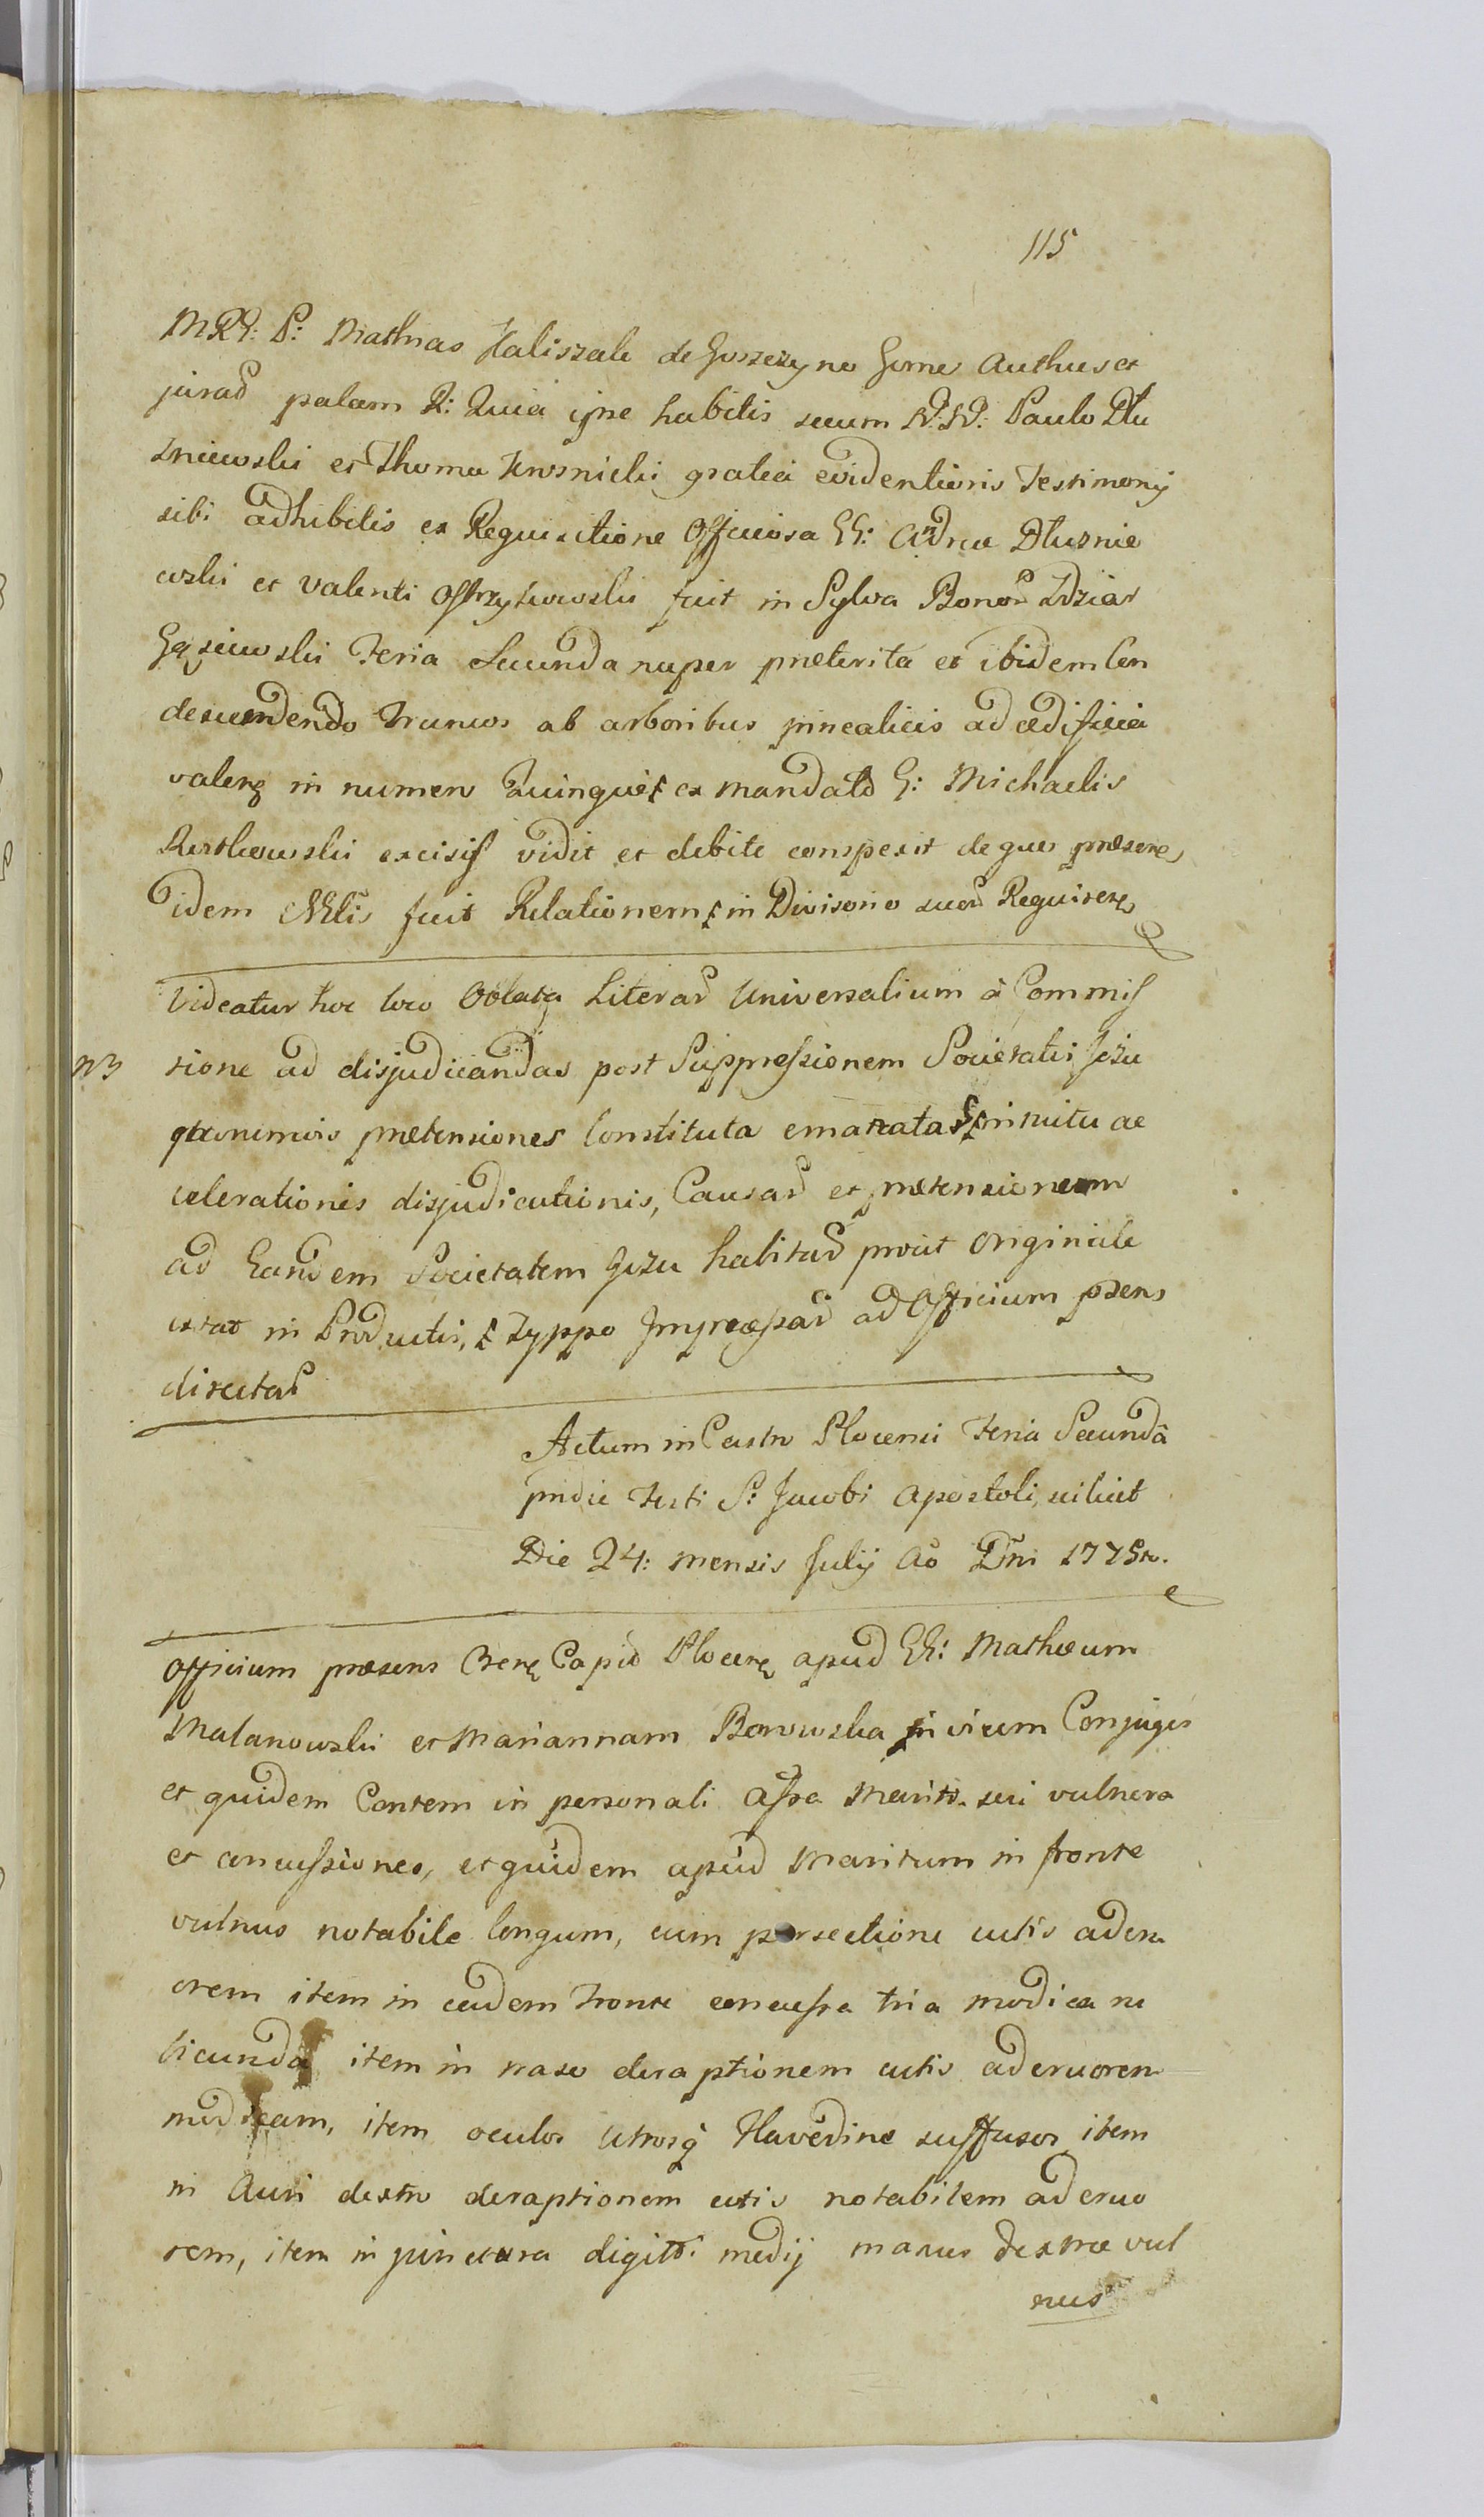 115
MRG: P: Mathias Kaliszak de Goszczyno Gorne Authus et
jurad palam R: Quia ipse habitis secum N: N: Paulo Dłu
żniewski et Thoma Krosnicki gratia evidentioris Testimonij
sibi adhibitis ex Requisitione Officiosa GG: Andreæ Dłużnie
wski et Valenti Ostrzykowski fuit in Sylva Bonor Zdziar
Gąsiewski Feria Secunda nuper præterita et ibidem Con
descendendo Truncos ab arboribus pinealicis ad ædificia
valens in numero Quinque ex mandato G: Michaelis
Rustkowski excisis vidit et debite conspexit de quo præsens
idem Mlis fuit Relationem in Divisorio suor Requirens
Videatur hoc loco Oblata Literar Universalium à Commis
NB sione ad disjudicandas post Suppressionem Societatis Jezu
quonimvis prætensiones Constituta emanatas, intuitu ac
celerationis disjudicationis, Causar et prætensionum
ad Eandem Societatem Jezu habitar prout Originale
extat in Productis, Typpo Impressar ad Officium præsens
directar
Actum in Castro Plocensi Feria Secundâ
pridie Festi S: Jacobi Apostoli, scilicet
Die 24: mensis Julij Ao Dni 1775to.
Officium præsens Crens Capid Plocens apud GG: Mathæum
Malanowski et Mariannam Borowska invicem Conjuges
et quidem Contem in personali Assa Mariti sui vulnera
et concussiones, et quidem apud Maritum in fronte
vulnus notabile longum, cum persectione cutis ad cru
orem item in eadem Fronte concussa tria modica ru
bicunda item in naso deraptionem cutis ad cruorem
modicam, item oculos utrosq Flavedine suffusos item
in Auri dextro deraptionem cutis notabilem ad cruo
rem, item in junctura digitti medij manus dextræ vul
nus